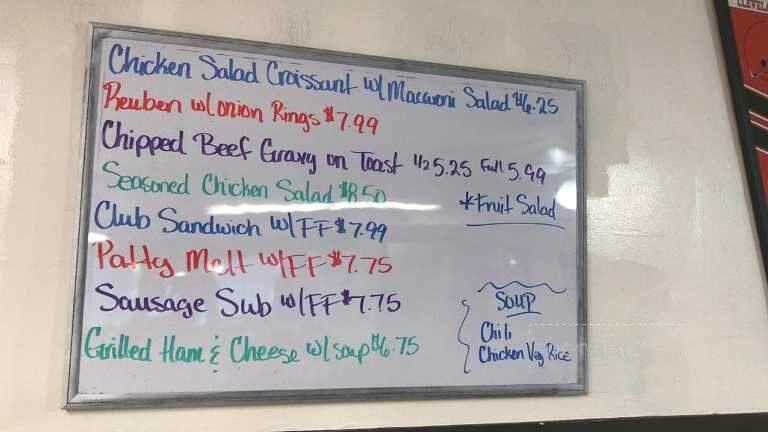 Chicken Salad Croissant w/ Macaroni Salad $6.25
Reuben w/ onion Rings $7.99
Chipped Beef Gravy on Toast 1/2 5.25 Full 5.99
Seasoned Chicken Salad $8.50
*Fruit Salad
Club Sandwich w/ FF $7.99
Patty Melt w/ FF $7.75
Sausage Sub w/ FF $7.75
Grilled Ham & Cheese w/ soup $6.75
Soup
Chili
Chicken Veg Rice